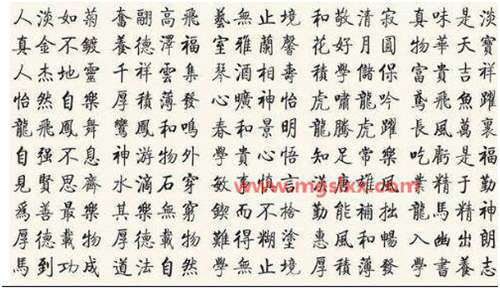 人淡如菊 奮翮高飛 藝無止境 和敬清寂 真味是淡
真金不鍍 養德澤福 室雅蘭馨 花好月圓 物華天寶
人杰地靈 千祥雲集 琴酒相壽 積學儲保 富貴吉祥
怡然自樂 厚積薄發 心曠神怡 虎嘯龍吟 鳶飛魚躍
龍飛鳳舞 鸞鳳和鳴 春和景明 龍騰虎躍 長風萬裏
自强不息 神游物外 學貴心悟 知足常樂 吃虧是福
見賢思齊 水滴石穿 敏事慎言 唐雄風 業精于勤
爲善最樂 其樂無窮 鍥而不捨 勤能補拙 龍馬精神
厚德載物 厚德載物 難得糊塗 惠風和暢 入幽出朗
馬到功成 道法自然 學無止境 厚積薄發 學書養志